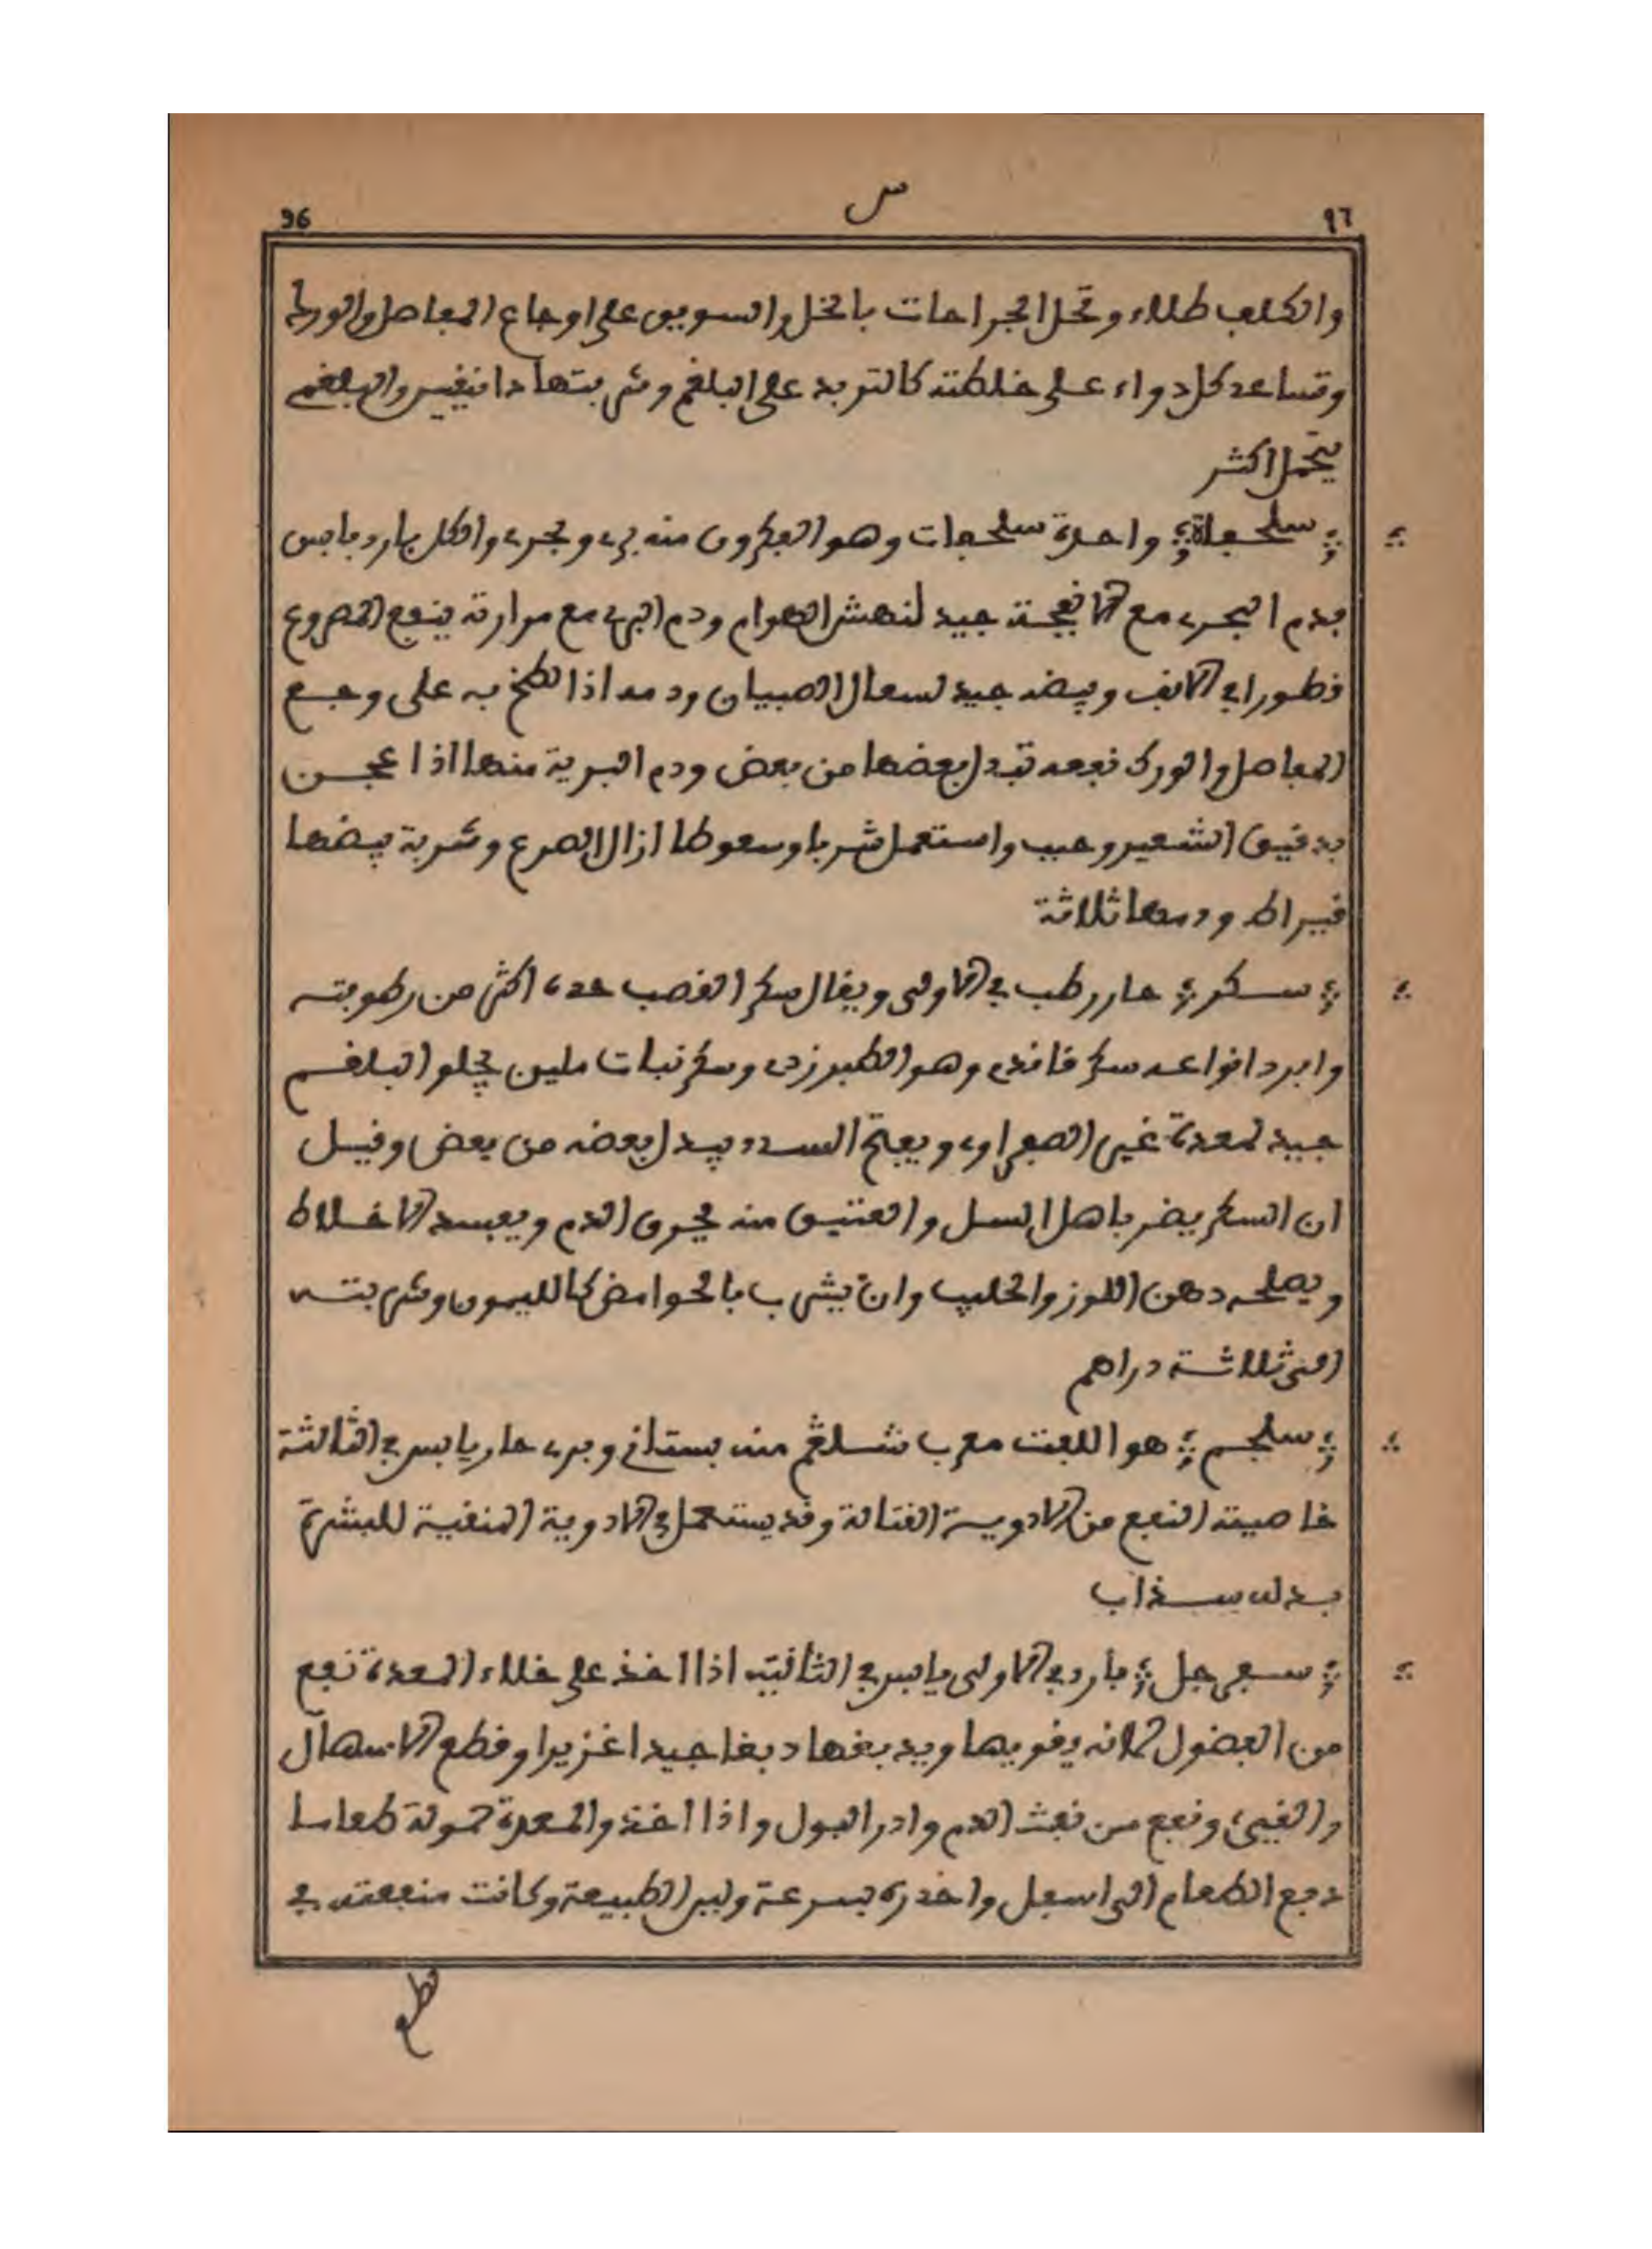 ٩٦ س 96
والكلف طلاء وتحل الجراحات بالخل والسويق على اوجاع المفاصل والورك
وتساعد كل دواء على خلطته كالتربد على البلغم وشربتها دانقين والبلغمي
يتحمل اكثر
؛ سلحفاة ؛ واحدة سلحفات وهو الفكرون منه بري وبحري والكل بارد يابس
فدم البحري مع الانفحة جيد لنهش الهوام ودم البري مع مرارته ينفع المصروع
قطورا في الانف وبيضه جيد لسعال الصبيان ودمه اذا لطخ به على وجع
المفاصل والورك نفعه تبدل بعضها من بعض ودم البرية منها اذا عجن
بدقيق الشعير وحبب واستعمل شربا وسعوطا ازال الصرع وشربة بيضها
قيراط ودمها ثلاثة
؛ سكر ؛ حار رطب في الاولى ويقال سكر القصب حده اكثر من رطوبته
وابرد انواعه سكر فانذم وهو الطبرزدي وسكر نبات ملين يجلو البلغم
جيد لمعدة غير الصفراوي ويفتح السدد يبدل بعضه من بعض وقيل
ان السكر يضر باهل السل والعتيق منه يحرق الدم ويفسد الاخلاط
ويصلحه دهن اللوز والحليب وان يشرب بالحوامض كالليمون وشربته
الى ثلاثة دراهم
؛ سلجم ؛ هو اللفت معرب شلغم منه بستاني وبري حار يابس في الثالثة
خاصيته النفع من الادوية القتالة وقد يستعمل في الادوية المنقية للبشرة
بدله سذاب
؛ سفرجل ؛ بارد في الاولى يابس في الثانية اذا اخذ على خلاء المعدة نفع
من الفضول لانه يقويها ويدبغها دبغا جيدا غزيرا وقطع الاسهال
والقيء ونفع من نفث الدم وادر البول واذا اخذ والمعدة حمولة طعاما
دفع الطعام الى اسفل واحدره بسرعة ولين الطبيعة وكانت منفعته في
قطع